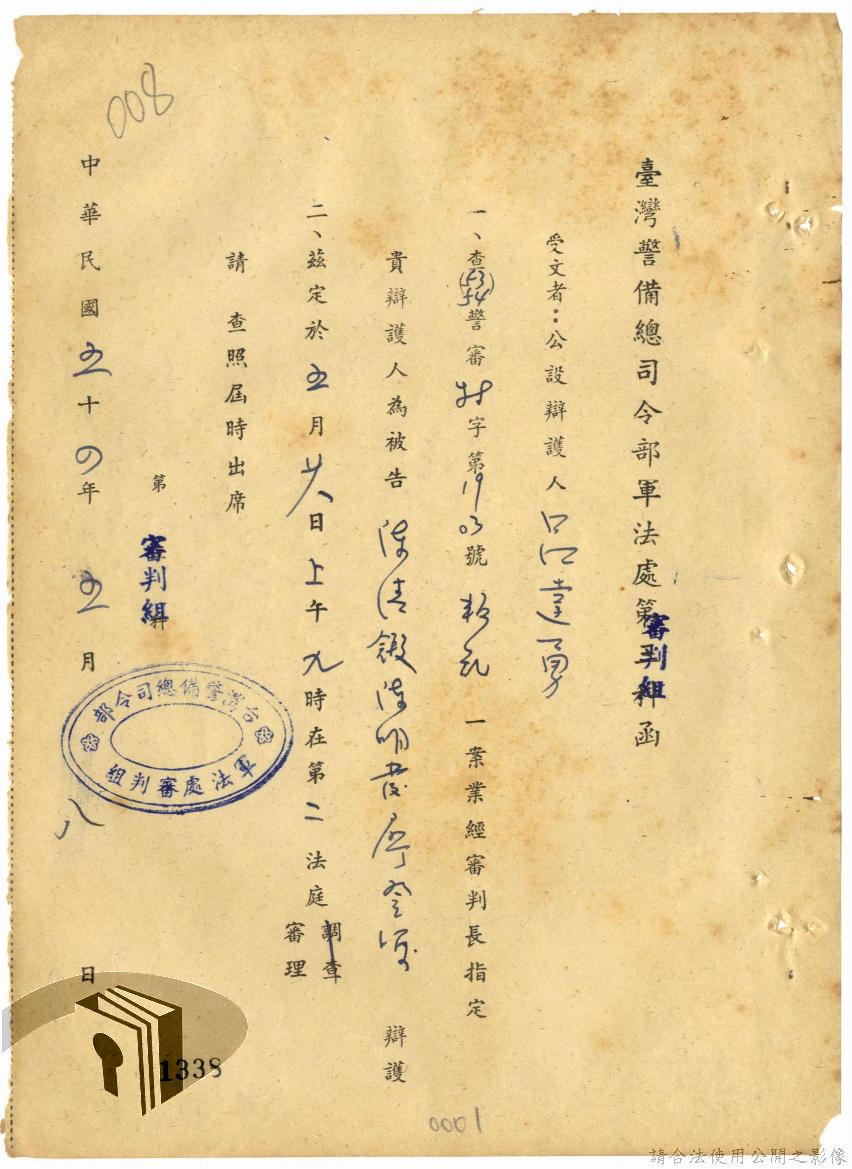 008
臺灣警備總司令部軍法處第審判組函
受文者：公設辯護人
一、查(53)54警審字第1903號叛亂一案業經審判長指定
貴辯護人為被告陳清 陳明發 辯護
二、茲定於五月廿八日上午九時在第二法庭調查審理
請查照屆時出席
第審判組
台灣警備總司令部
軍法處審判組
中華民國五十四年五月八日
1338
0001
請合法使用公開之影像